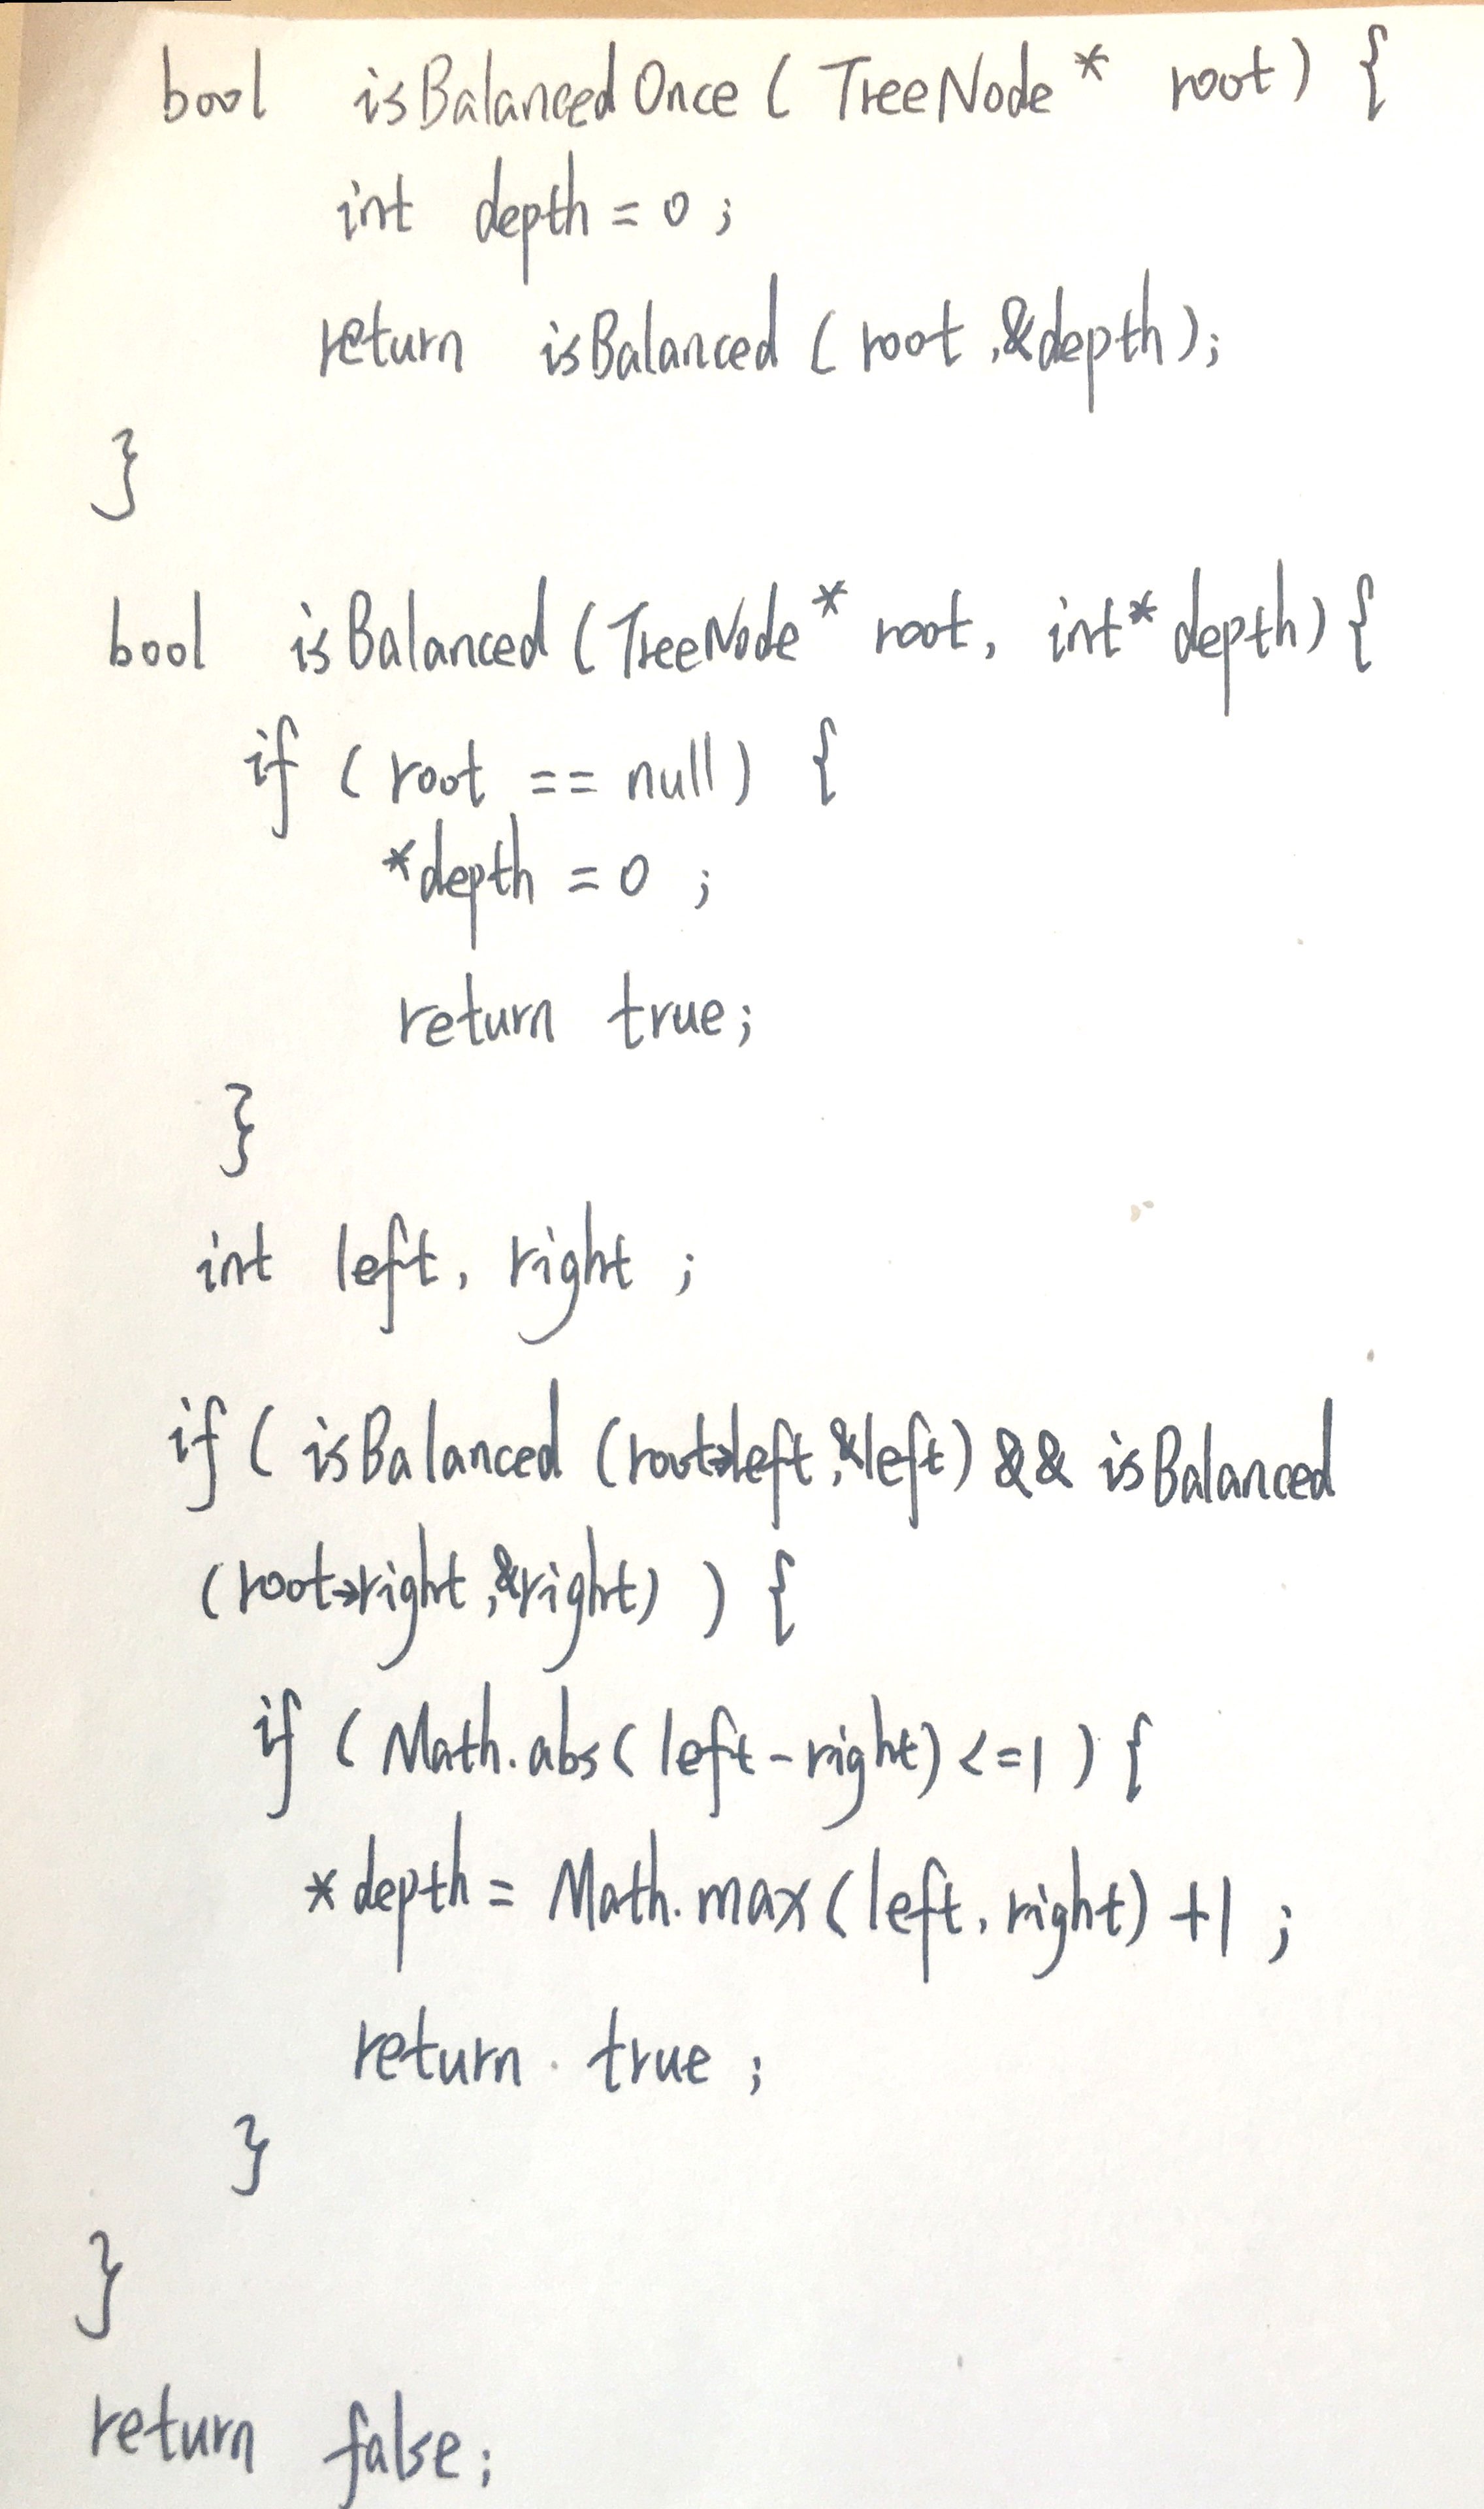 bool isBalancedOnce ( TreeNode * root ) {
int depth = 0 ;
return isBalanced ( root , &depth );
}
bool isBalanced ( TreeNode * root, int* depth ) {
if ( root == null ) {
*depth = 0 ;
return true;
}
int left, right ;
if ( isBalanced (root->left, &left) && isBalanced
(root->right, &right) ) {
if ( Math.abs( left - right ) <= 1 ) {
* depth = Math.max( left, right ) + 1 ;
return true ;
}
}
return false;